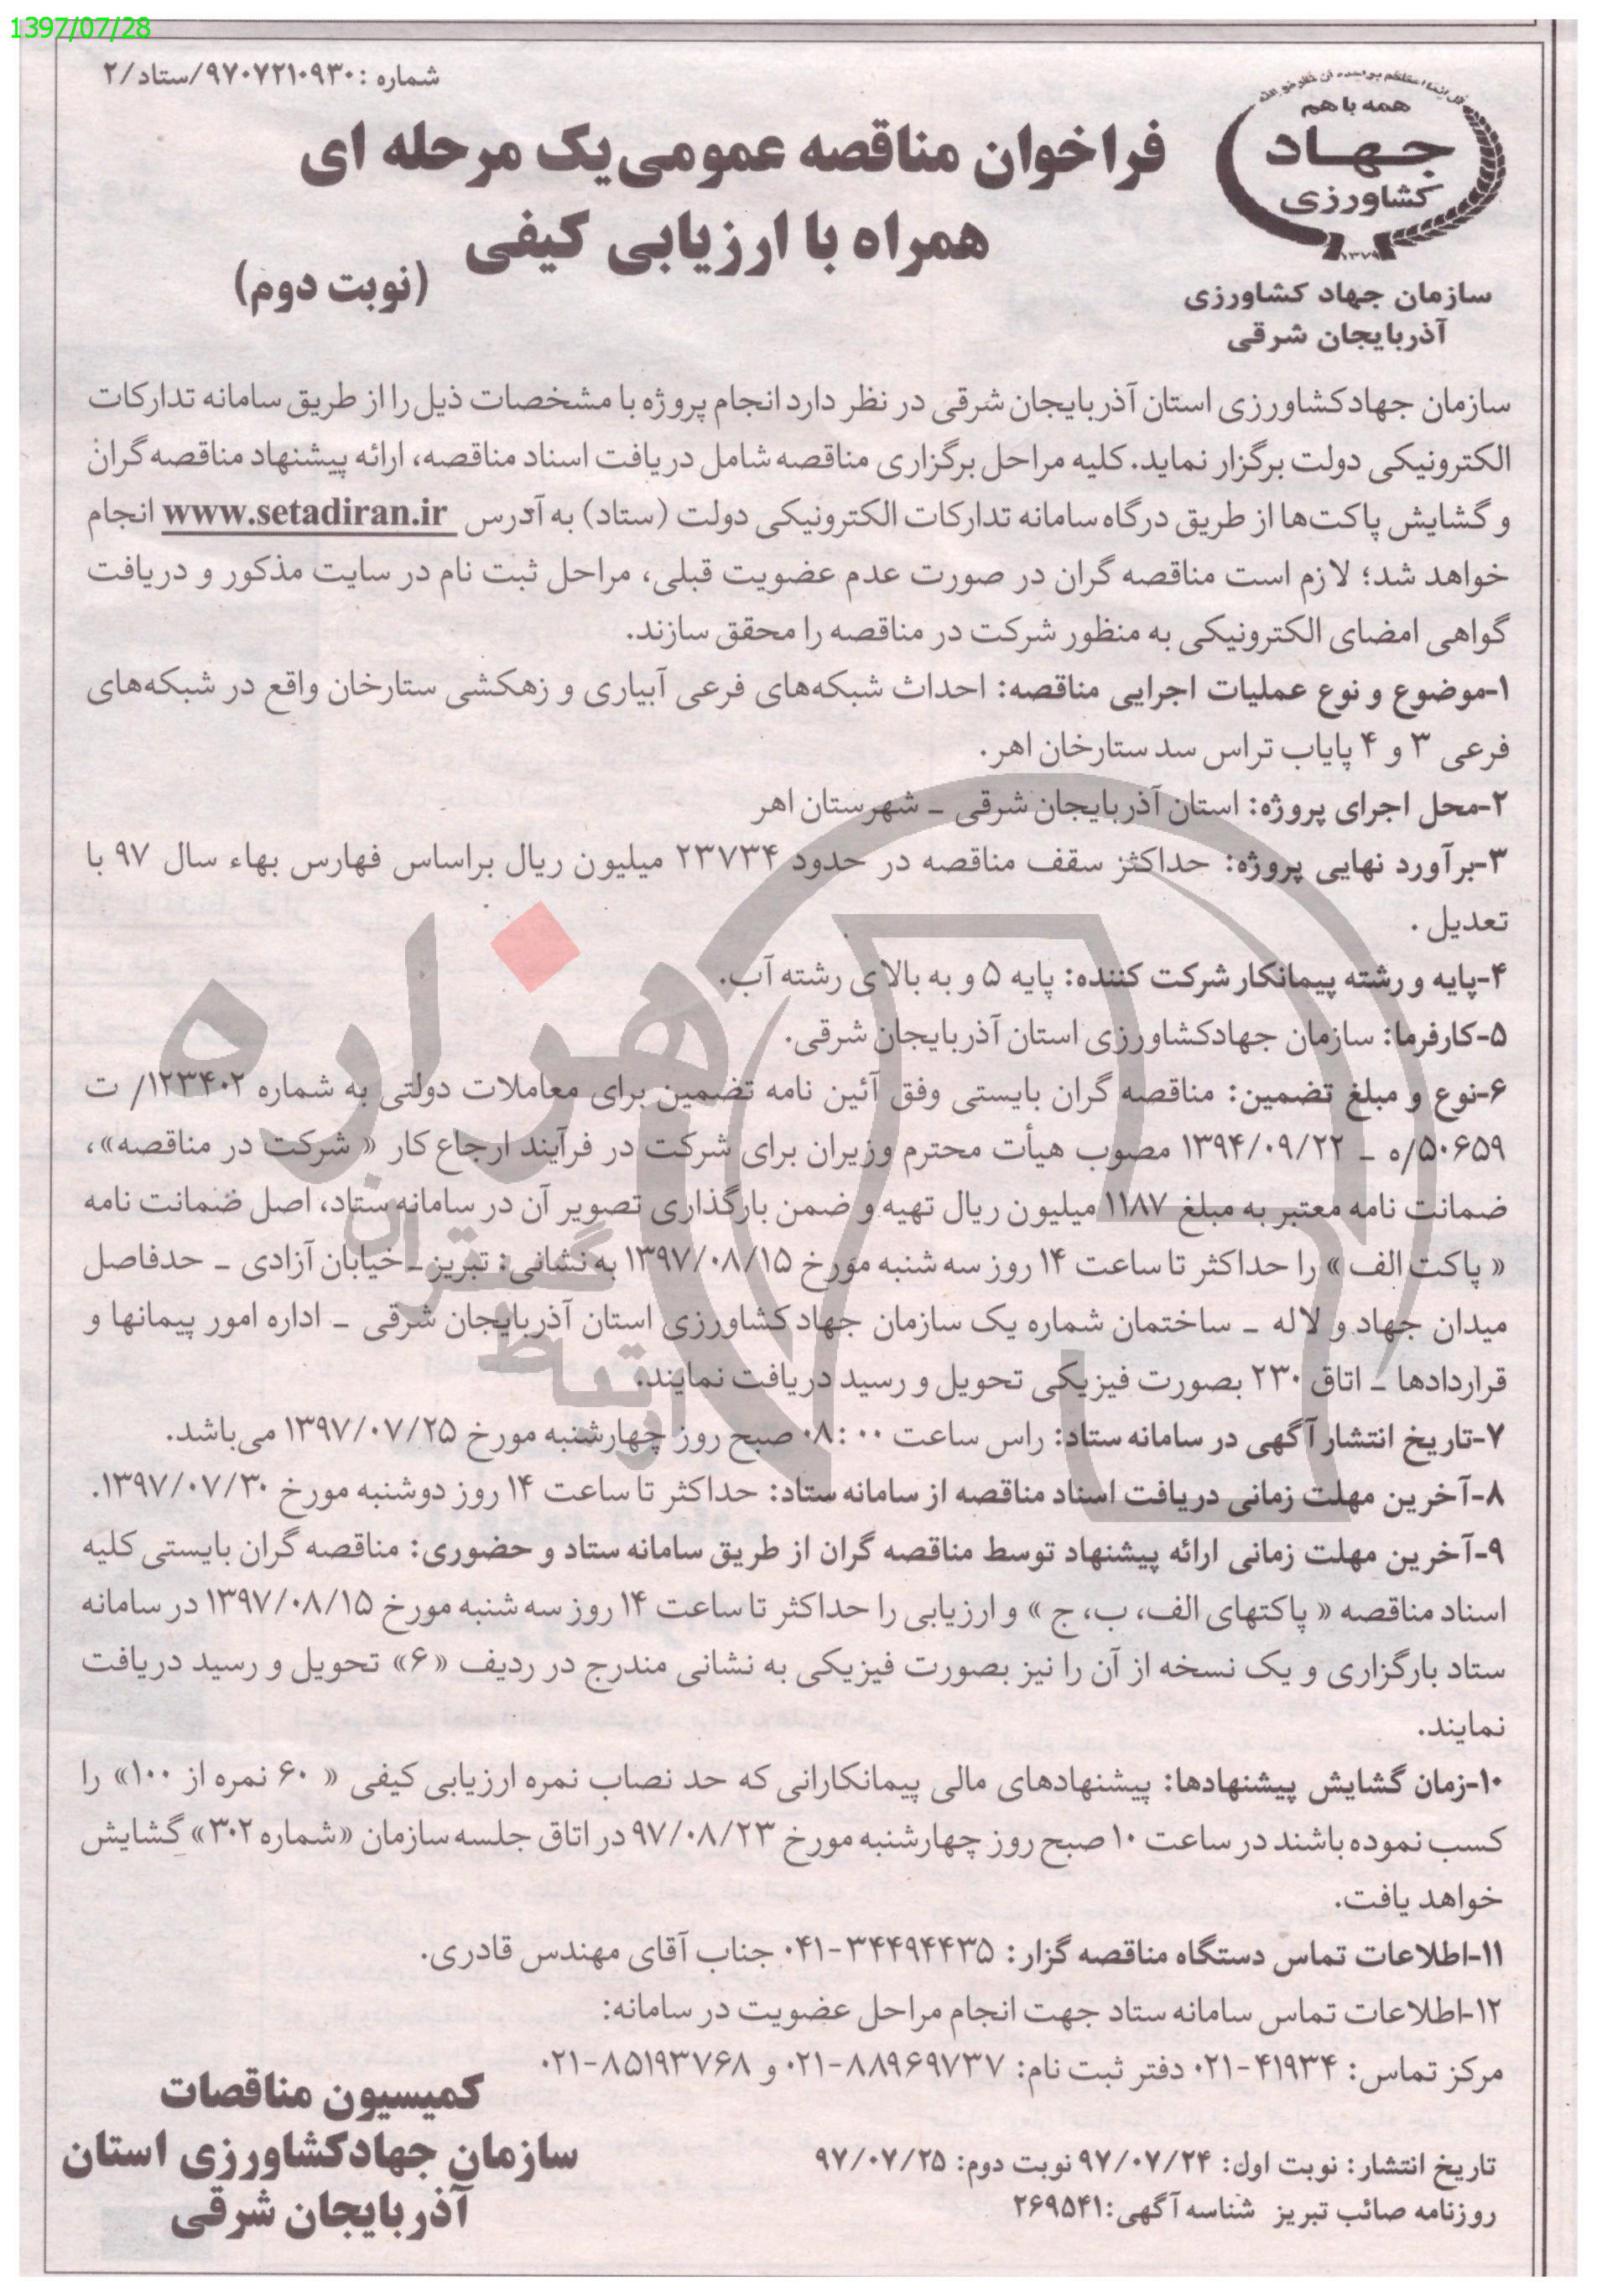 1397/07/28
شماره : ۹۷۰۷۲۱۰۹۳۰/ستاد/۲
همه با هم
جهاد
کشاورزی
۱۳۷۹
سازمان جهاد کشاورزی
آذربایجان شرقی
فراخوان مناقصه عمومی یک مرحله ای
همراه با ارزیابی کیفی
(نوبت دوم)
سازمان جهادکشاورزی استان آذربایجان شرقی در نظر دارد انجام پروژه با مشخصات ذیل را از طریق سامانه تدارکات
الکترونیکی دولت برگزار نماید. کلیه مراحل برگزاری مناقصه شامل دریافت اسناد مناقصه، ارائه پیشنهاد مناقصه گران
و گشایش پاکت‌ها از طریق درگاه سامانه تدارکات الکترونیکی دولت (ستاد) به آدرس www.setadiran.ir انجام
خواهد شد؛ لازم است مناقصه گران در صورت عدم عضویت قبلی، مراحل ثبت نام در سایت مذکور و دریافت
گواهی امضای الکترونیکی به منظور شرکت در مناقصه را محقق سازند.
۱-موضوع و نوع عملیات اجرایی مناقصه: احداث شبکه‌های فرعی آبیاری و زهکشی ستارخان واقع در شبکه‌های
فرعی ۳ و ۴ پایاب تراس سد ستارخان اهر.
۲-محل اجرای پروژه: استان آذربایجان شرقی - شهرستان اهر
۳-برآورد نهایی پروژه: حداکثر سقف مناقصه در حدود ۲۳۷۳۴ میلیون ریال براساس فهارس بهاء سال ۹۷ با
تعدیل .
۴-پایه و رشته پیمانکار شرکت کننده: پایه ۵ و به بالا ی رشته آب.
۵-کارفرما: سازمان جهادکشاورزی استان آذربایجان شرقی.
۶-نوع و مبلغ تضمین: مناقصه گران بایستی وفق آئین نامه تضمین برای معاملات دولتی به شماره ۱۲۳۴۰۲/ ت
۵۰۶۵۹/ه - ۱۳۹۴/۰۹/۲۲ مصوب هیأت محترم وزیران برای شرکت در فرآیند ارجاع کار « شرکت در مناقصه»،
ضمانت نامه معتبر به مبلغ ۱۱۸۷ میلیون ریال تهیه و ضمن بارگذاری تصویر آن در سامانه ستاد، اصل ضمانت نامه
« پاکت الف» را حداکثر تا ساعت ۱۴ روز سه شنبه مورخ ۱۳۹۷/۰۸/۱۵ به نشانی: تبریز- خیابان آزادی - حدفاصل
میدان جهاد و لاله - ساختمان شماره یک سازمان جهاد کشاورزی استان آذربایجان شرقی - اداره امور پیمانها و
قراردادها - اتاق ۲۳۰ بصورت فیزیکی تحویل و رسید دریافت نمایند.
۷-تاریخ انتشار آگهی در سامانه ستاد: راس ساعت ۰۰ :۰۸ صبح روز چهارشنبه مورخ ۱۳۹۷/۰۷/۲۵ می‌باشد.
۸-آخرین مهلت زمانی دریافت اسناد مناقصه از سامانه ستاد: حداکثر تا ساعت ۱۴ روز دوشنبه مورخ ۱۳۹۷/۰۷/۳۰.
۹-آخرین مهلت زمانی ارائه پیشنهاد توسط مناقصه گران از طریق سامانه ستاد و حضوری: مناقصه گران بایستی کلیه
اسناد مناقصه « پاکتهای الف، ب، ج » و ارزیابی را حداکثر تا ساعت ۱۴ روز سه شنبه مورخ ۱۳۹۷/۰۸/۱۵ در سامانه
ستاد بارگزاری و یک نسخه از آن را نیز بصورت فیزیکی به نشانی مندرج در ردیف «۶» تحویل و رسید دریافت
نمایند.
۱۰-زمان گشایش پیشنهادها: پیشنهادهای مالی پیمانکارانی که حد نصاب نمره ارزیابی کیفی « ۶۰ نمره از ۱۰۰» را
کسب نموده باشند در ساعت ۱۰ صبح روز چهارشنبه مورخ ۹۷/۰۸/۲۳ در اتاق جلسه سازمان «شماره ۳۰۲» گشایش
خواهد یافت.
۱۱-اطلاعات تماس دستگاه مناقصه گزار: ۳۴۴۹۴۴۳۵-۰۴۱ جناب آقای مهندس قادری.
۱۲-اطلاعات تماس سامانه ستاد جهت انجام مراحل عضویت در سامانه:
مرکز تماس: ۴۱۹۳۴-۰۲۱ دفتر ثبت نام: ۸۸۹۶۹۷۳۷-۰۲۱ و ۸۵۱۹۳۷۶۸-۰۲۱
تاریخ انتشار: نوبت اول: ۹۷/۰۷/۲۴ نوبت دوم: ۹۷/۰۷/۲۵
روزنامه صائب تبریز شناسه آگهی:۲۶۹۵۴۱
کمیسیون مناقصات
سازمان جهادکشاورزی استان
آذربایجان شرقی
هزاره
گستران
ارتباط